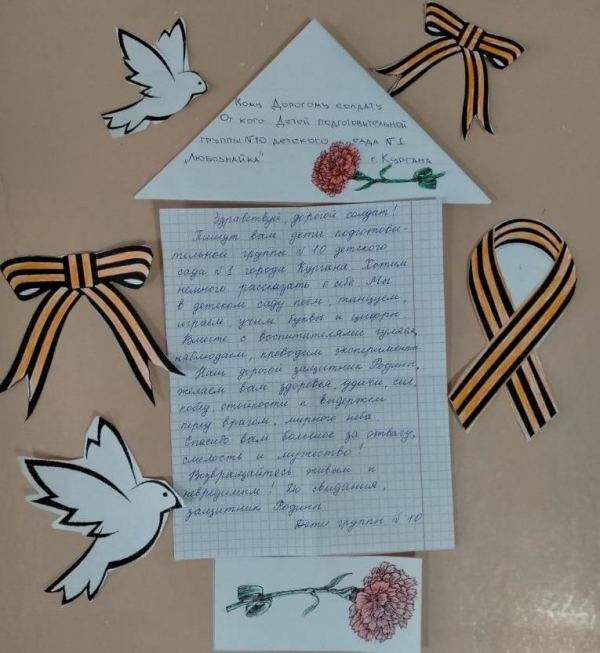 Кому Дорогому солдату
От кого Детей подготовительной
группы №10 детского сада №1
"Любознайка" г. Кургана
Здравствуй, дорогой солдат!
Пишут вам дети подготови-
тельной группы №10 детского
сада №1 города Кургана. Хотим
немного рассказать о себе. Мы
в детском саду поём, танцуем,
играем, учим буквы и цифры
Вместе с воспитателями гуляем,
наблюдаем, проводим эксперименты
Наш дорогой защитник Родины,
желаем вам здоровья, удачи, сил,
побед, стойкости и выдержки
перед врагом, мирного неба
Спасибо вам большое за отвагу,
смелость и мужество!
Возвращайтесь живым и
невредимым! До свидания,
защитник Родины
Дети группы №10